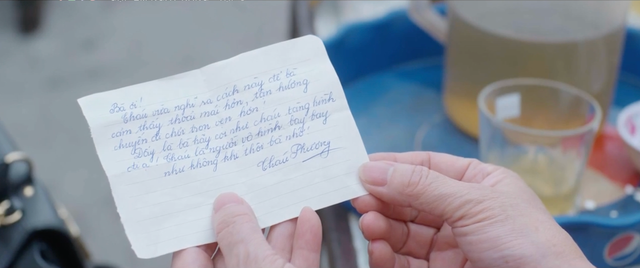 Bà ơi!
Cháu vừa nghĩ ra cách này để bà
cảm thấy thoải mái hơn, tận hưởng
chuyến đi chơi trọn vẹn hơn!
Đây, là bà hãy coi như cháu tàng hình
đi ạ! Cháu là người vô hình bay bay
như không khí thôi bà nhé!
Cháu Phương